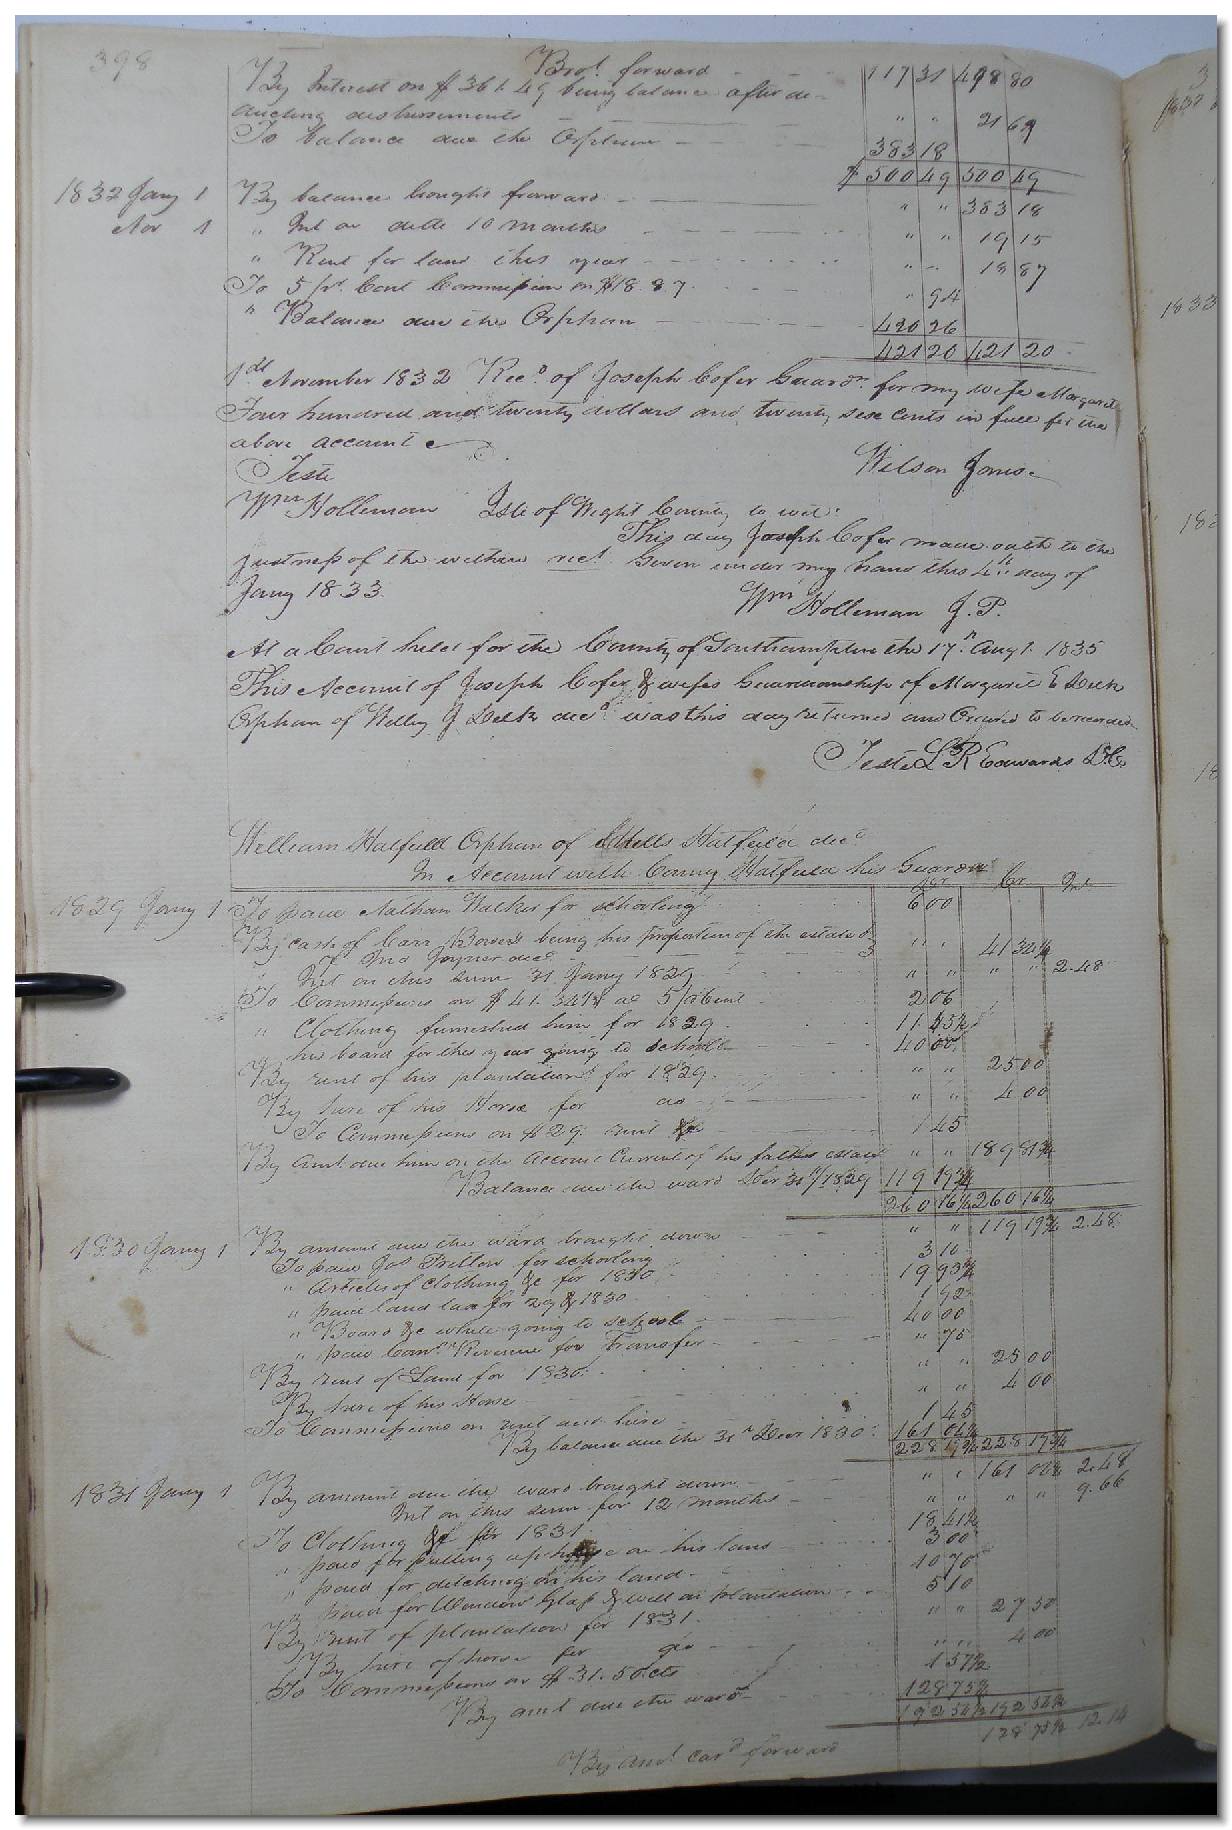 398
Bro.t forward - - 117 31 498 80
By Interest on $361.49 being balance after de-
ducting disbursements " " 21 69
To balance due the Orphan - - 383 18
$ 500 49 500 49
1832 Jany 1 By balance brought forward - " " 383 18
Nov 1 " Int on ditto 10 months " " 19 15
" Rent for land this year " " 18 87
To 5 pr. Cent Commission on $18.87 " 94
" Balance due the Orphan 420 26
421 20 421 20
1st November 1832 Recd. of Joseph Cofer Guardn. for my wife Margaret
Four hundred and twenty dollars and twenty six cents in full for the
above account
Teste Wilson Jones
Wm Holleman Isle of Wight County to wit:
This day Joseph Cofer made oath to the
justness of the within rect. Given under my hand this 4th day of
Jany 1833. Wm Holleman J.P.
At a Court held for the County of Southampton the 17th Augt. 1835
This Account of Joseph Cofer & wifes Guardianship of Margaret E Delk
Orphan of Willey J Delk decd. was this day returned and Ordered to be recorded
Teste L R Edwards D.C.
William Hatfield Orphan of Hatfield decd
In Account with Hatfield his Guardn
Dr Cr Int
1829 Jany 1 To paid Nathan Walker for schooling 6 00
By cash of Carr Bowers being his proportion of the estate of
Joyner decd " " 41 32 1/4
Int on this sum 31 Jany 1829 " " " " 2.48
To Commissions on $41.32 1/4 at 5 pr Cent 2 06
" Clothing furnished him for 1829. 11 45 1/2
his board for this year going to school 40 00
By rent of his plantation for 1829. " " 25 00
By hire of his Horse for do " " 4 00
To Commissions on $29. rent &c 1 45
By amt. due him on the Account Current of his fathers estate " " 189 81 3/4
Balance due the ward Dcr 31st/1829 119 19 3/4
260 16 1/4 260 16 1/4
1830 Jany 1 By amount due the ward brought down " " 119 19 3/4 2.48
To paid Jos Britton for schooling 3 10
" Articles of Clothing &c for 1830 19 93 3/4
" paid land tax for 29 & 1830 1 92
" Board &c while going to school 40 00
" paid Comr. Revenue for Transfer " 75
By rent of Land for 1830. " " 25 00
By hire of his Horse " " 4 00
To Commissions on rent and hire 1 45
By balance due the 31st Decr 1830 161 04
228 19 3/4 228 19 3/4
1831 Jany 1 By amount due the ward brought down " " 161 2.48
Int on this sum for 12 months " " " " 9.66
To Clothing &c for 1831. 18 41 1/2
" paid for pulling up house on his land 3 00
" paid for ditching on his land 10 70
" paid for Window Glass & well on plantation 5 10
By rent of plantation for 1831. " " 27 50
By hire of horse for do " " 4 00
To Commissions on $31.50 cts 1 57 1/2
By amt due the ward 128 75 1/2
192 54 1/2 192 54 1/2
By amt. card forward 128 75 1/2 12.14
3
1832
1833